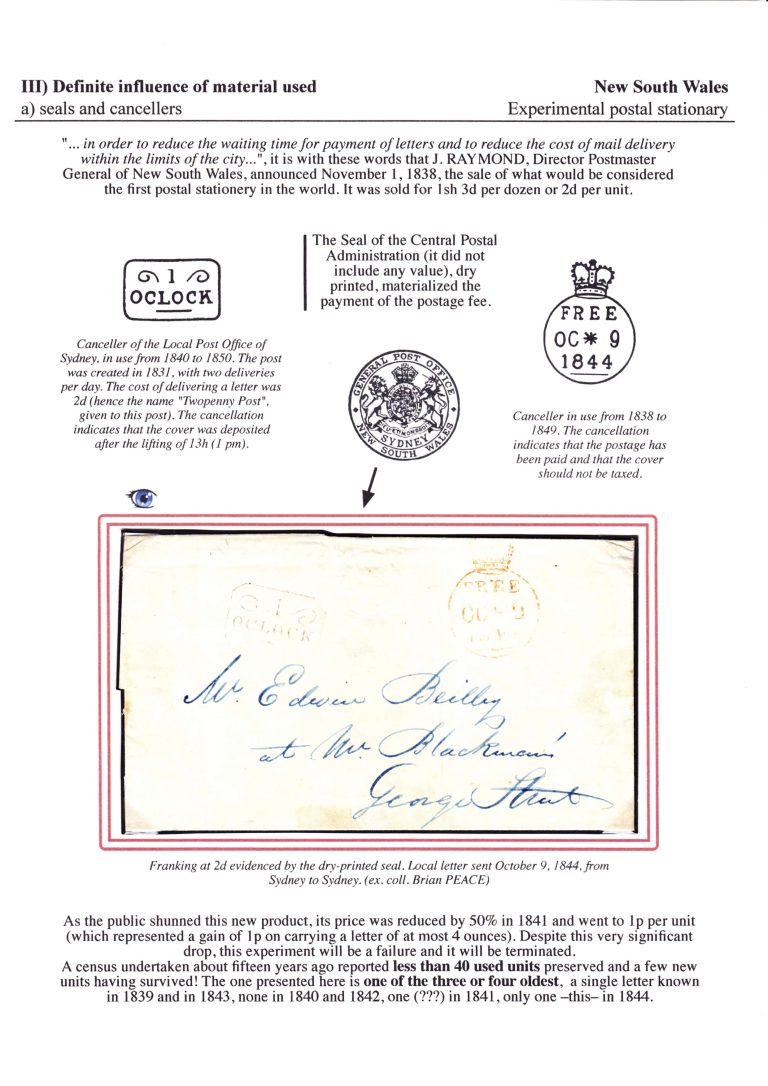 III) Definite influence of material used
New South Wales
a) seals and cancellers
Experimental postal stationary
"... in order to reduce the waiting time for payment of letters and to reduce the cost of mail delivery
within the limits of the city...", it is with these words that J. RAYMOND, Director Postmaster
General of New South Wales, announced November 1, 1838, the sale of what would be considered
the first postal stationery in the world. It was sold for 1sh 3d per dozen or 2d per unit.
1
OCLOCK
Canceller of the Local Post Office of
Sydney, in use from 1840 to 1850. The post
was created in 1831, with two deliveries
per day. The cost of delivering a letter was
2d (hence the name "Twopenny Post",
given to this post). The cancellation
indicates that the cover was deposited
after the lifting of 13h (1 pm).
The Seal of the Central Postal
Administration (it did not
include any value), dry
printed, materialized the
payment of the postage fee.
GENERAL POST OFFICE
SYDNEY
NEW SOUTH WALES
FREE
OC * 9
1844
Canceller in use from 1838 to
1849. The cancellation
indicates that the postage has
been paid and that the cover
should not be taxed.
1
OCLOCK
FREE
OC 9
Mr. Edwin Beilby
at Mr. Blackman's
George Street
Franking at 2d evidenced by the dry-printed seal. Local letter sent October 9, 1844, from
Sydney to Sydney. (ex. coll. Brian PEACE)
As the public shunned this new product, its price was reduced by 50% in 1841 and went to 1p per unit
(which represented a gain of 1p on carrying a letter of at most 4 ounces). Despite this very significant
drop, this experiment will be a failure and it will be terminated.
A census undertaken about fifteen years ago reported less than 40 used units preserved and a few new
units having survived! The one presented here is one of the three or four oldest, a single letter known
in 1839 and in 1843, none in 1840 and 1842, one (???) in 1841, only one –this– in 1844.